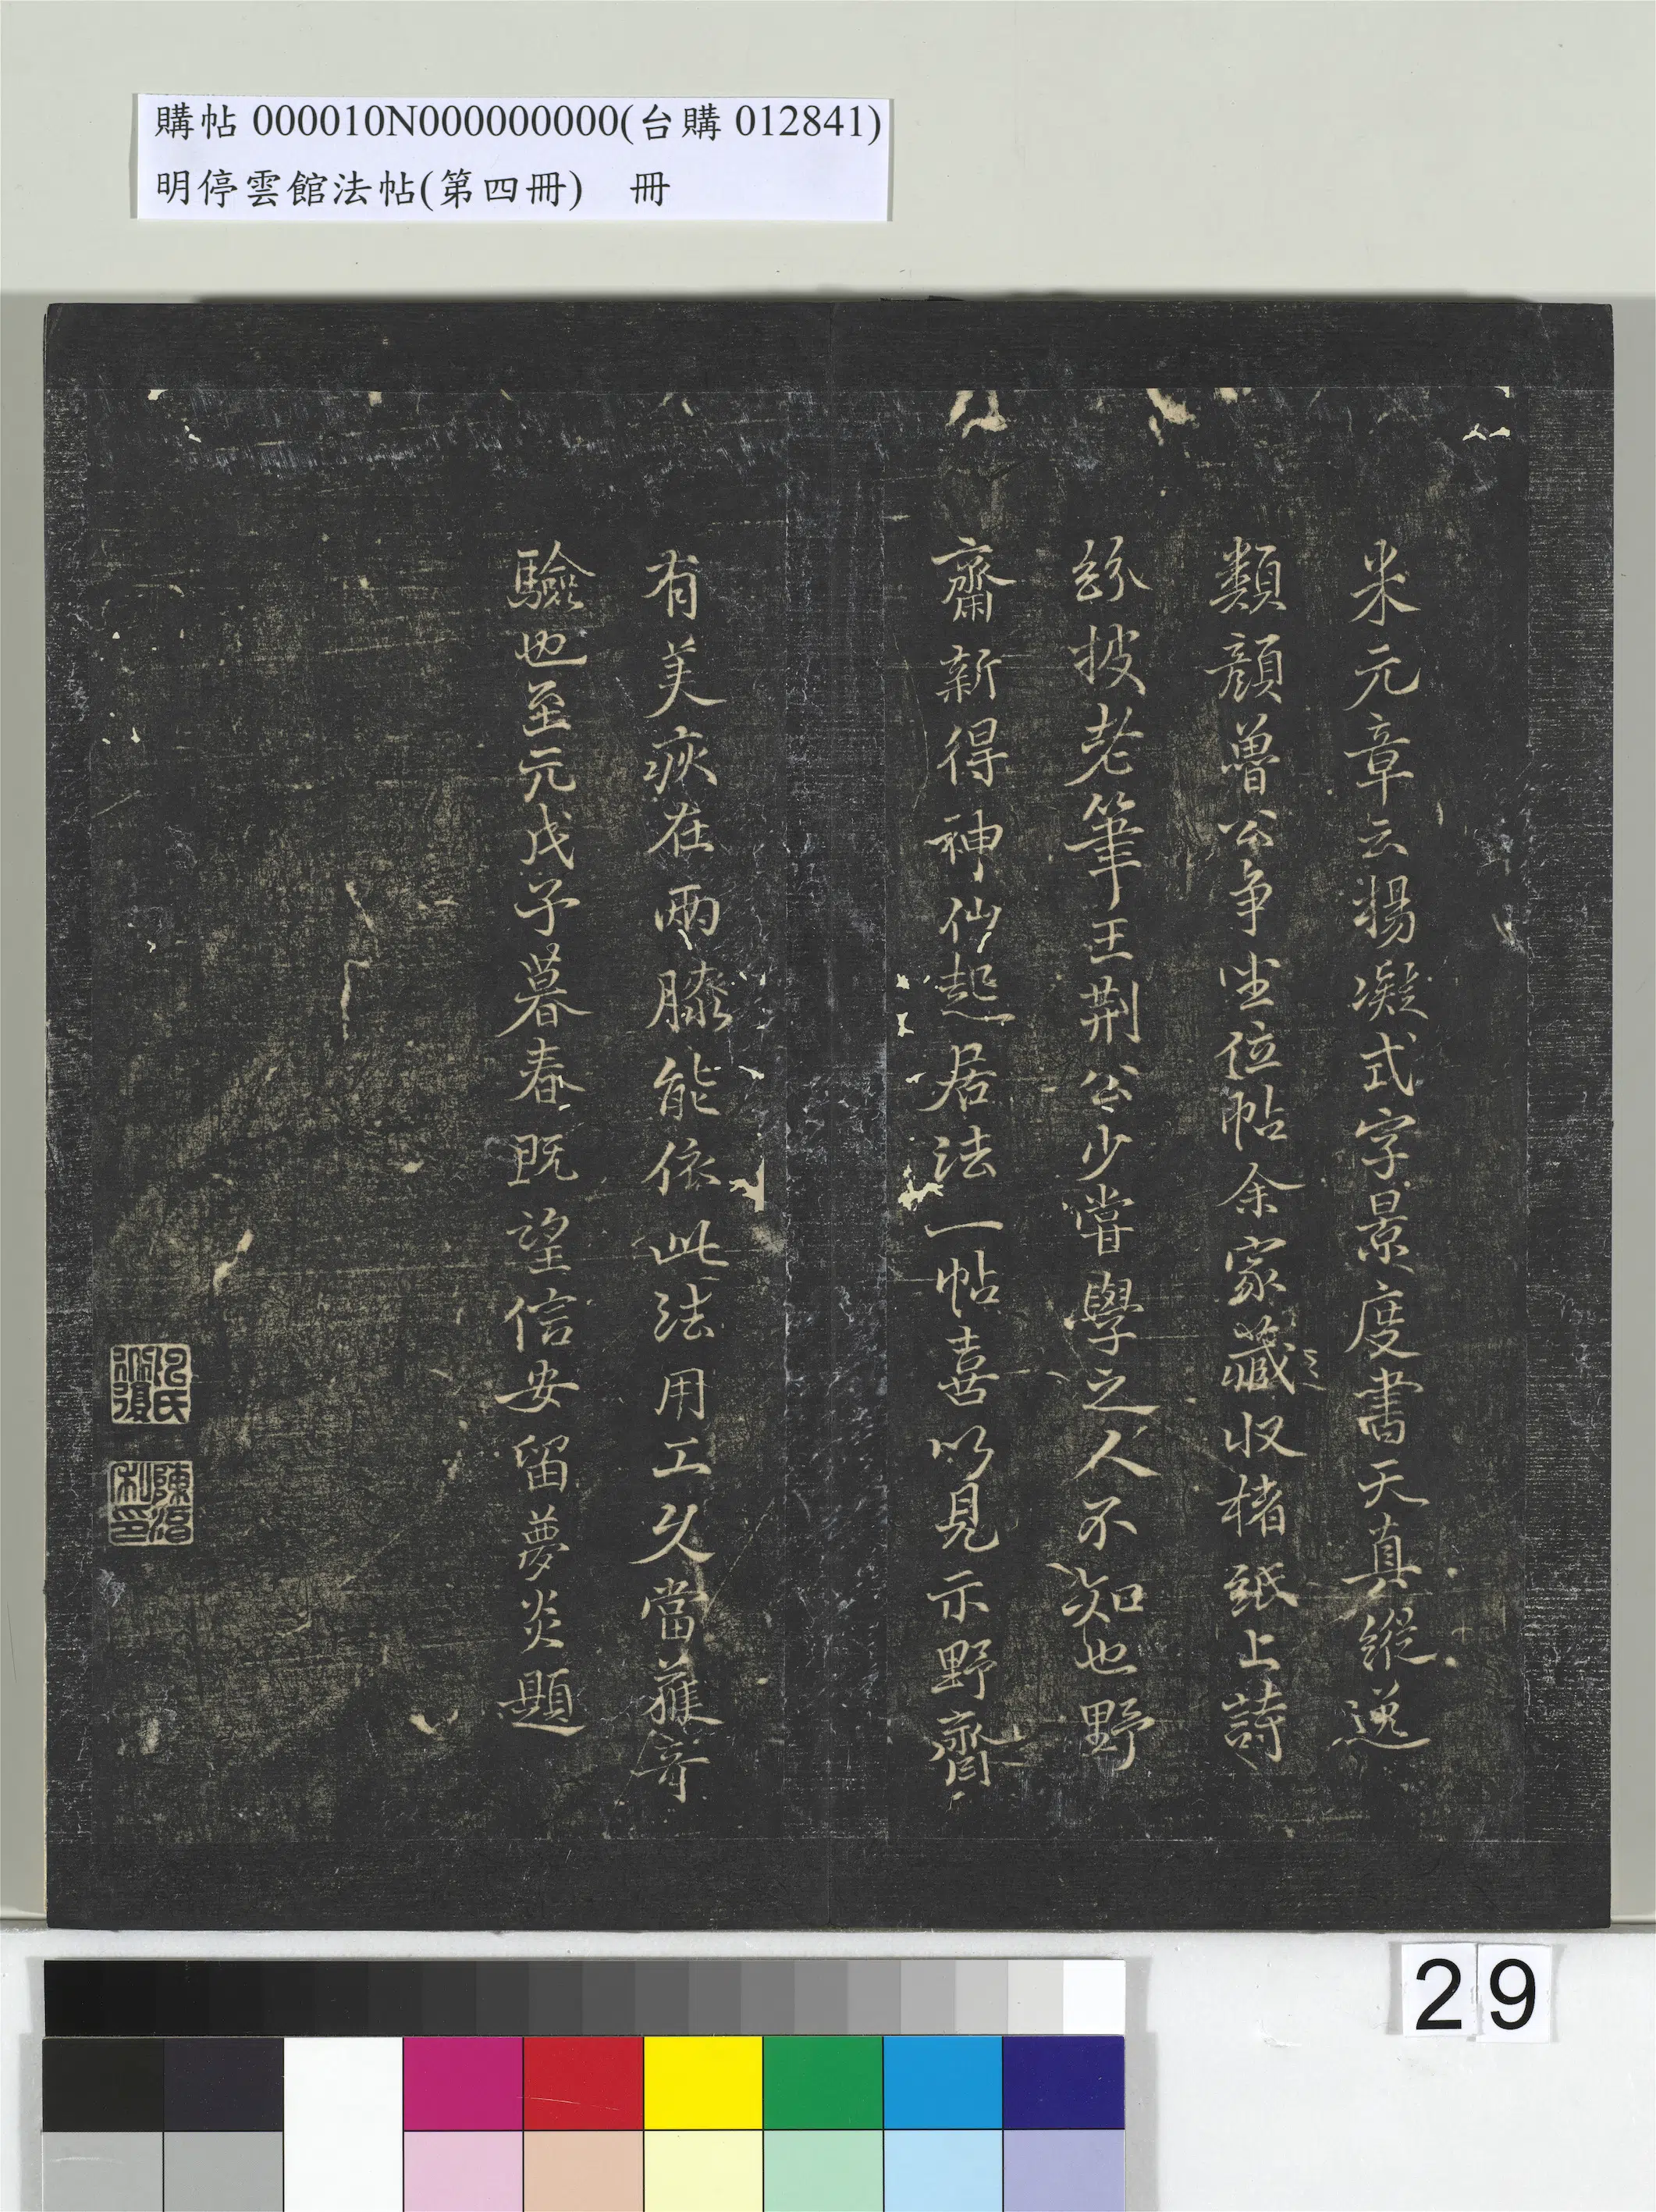 購帖 000010N000000000(台購 012841)
明停雲館法帖(第四冊)　冊
米元章云楊凝式字景度書天真縱逸
類顏魯公爭坐位帖余家藏收楮紙上詩
紛披老筆王荊公少嘗學之人不知也野
齋新得神仙起居法一帖喜以見示野齋
有美疢在兩膝能依此法用工久當獲奇
驗也至元戊子暮春既望信安留夢炎題
29